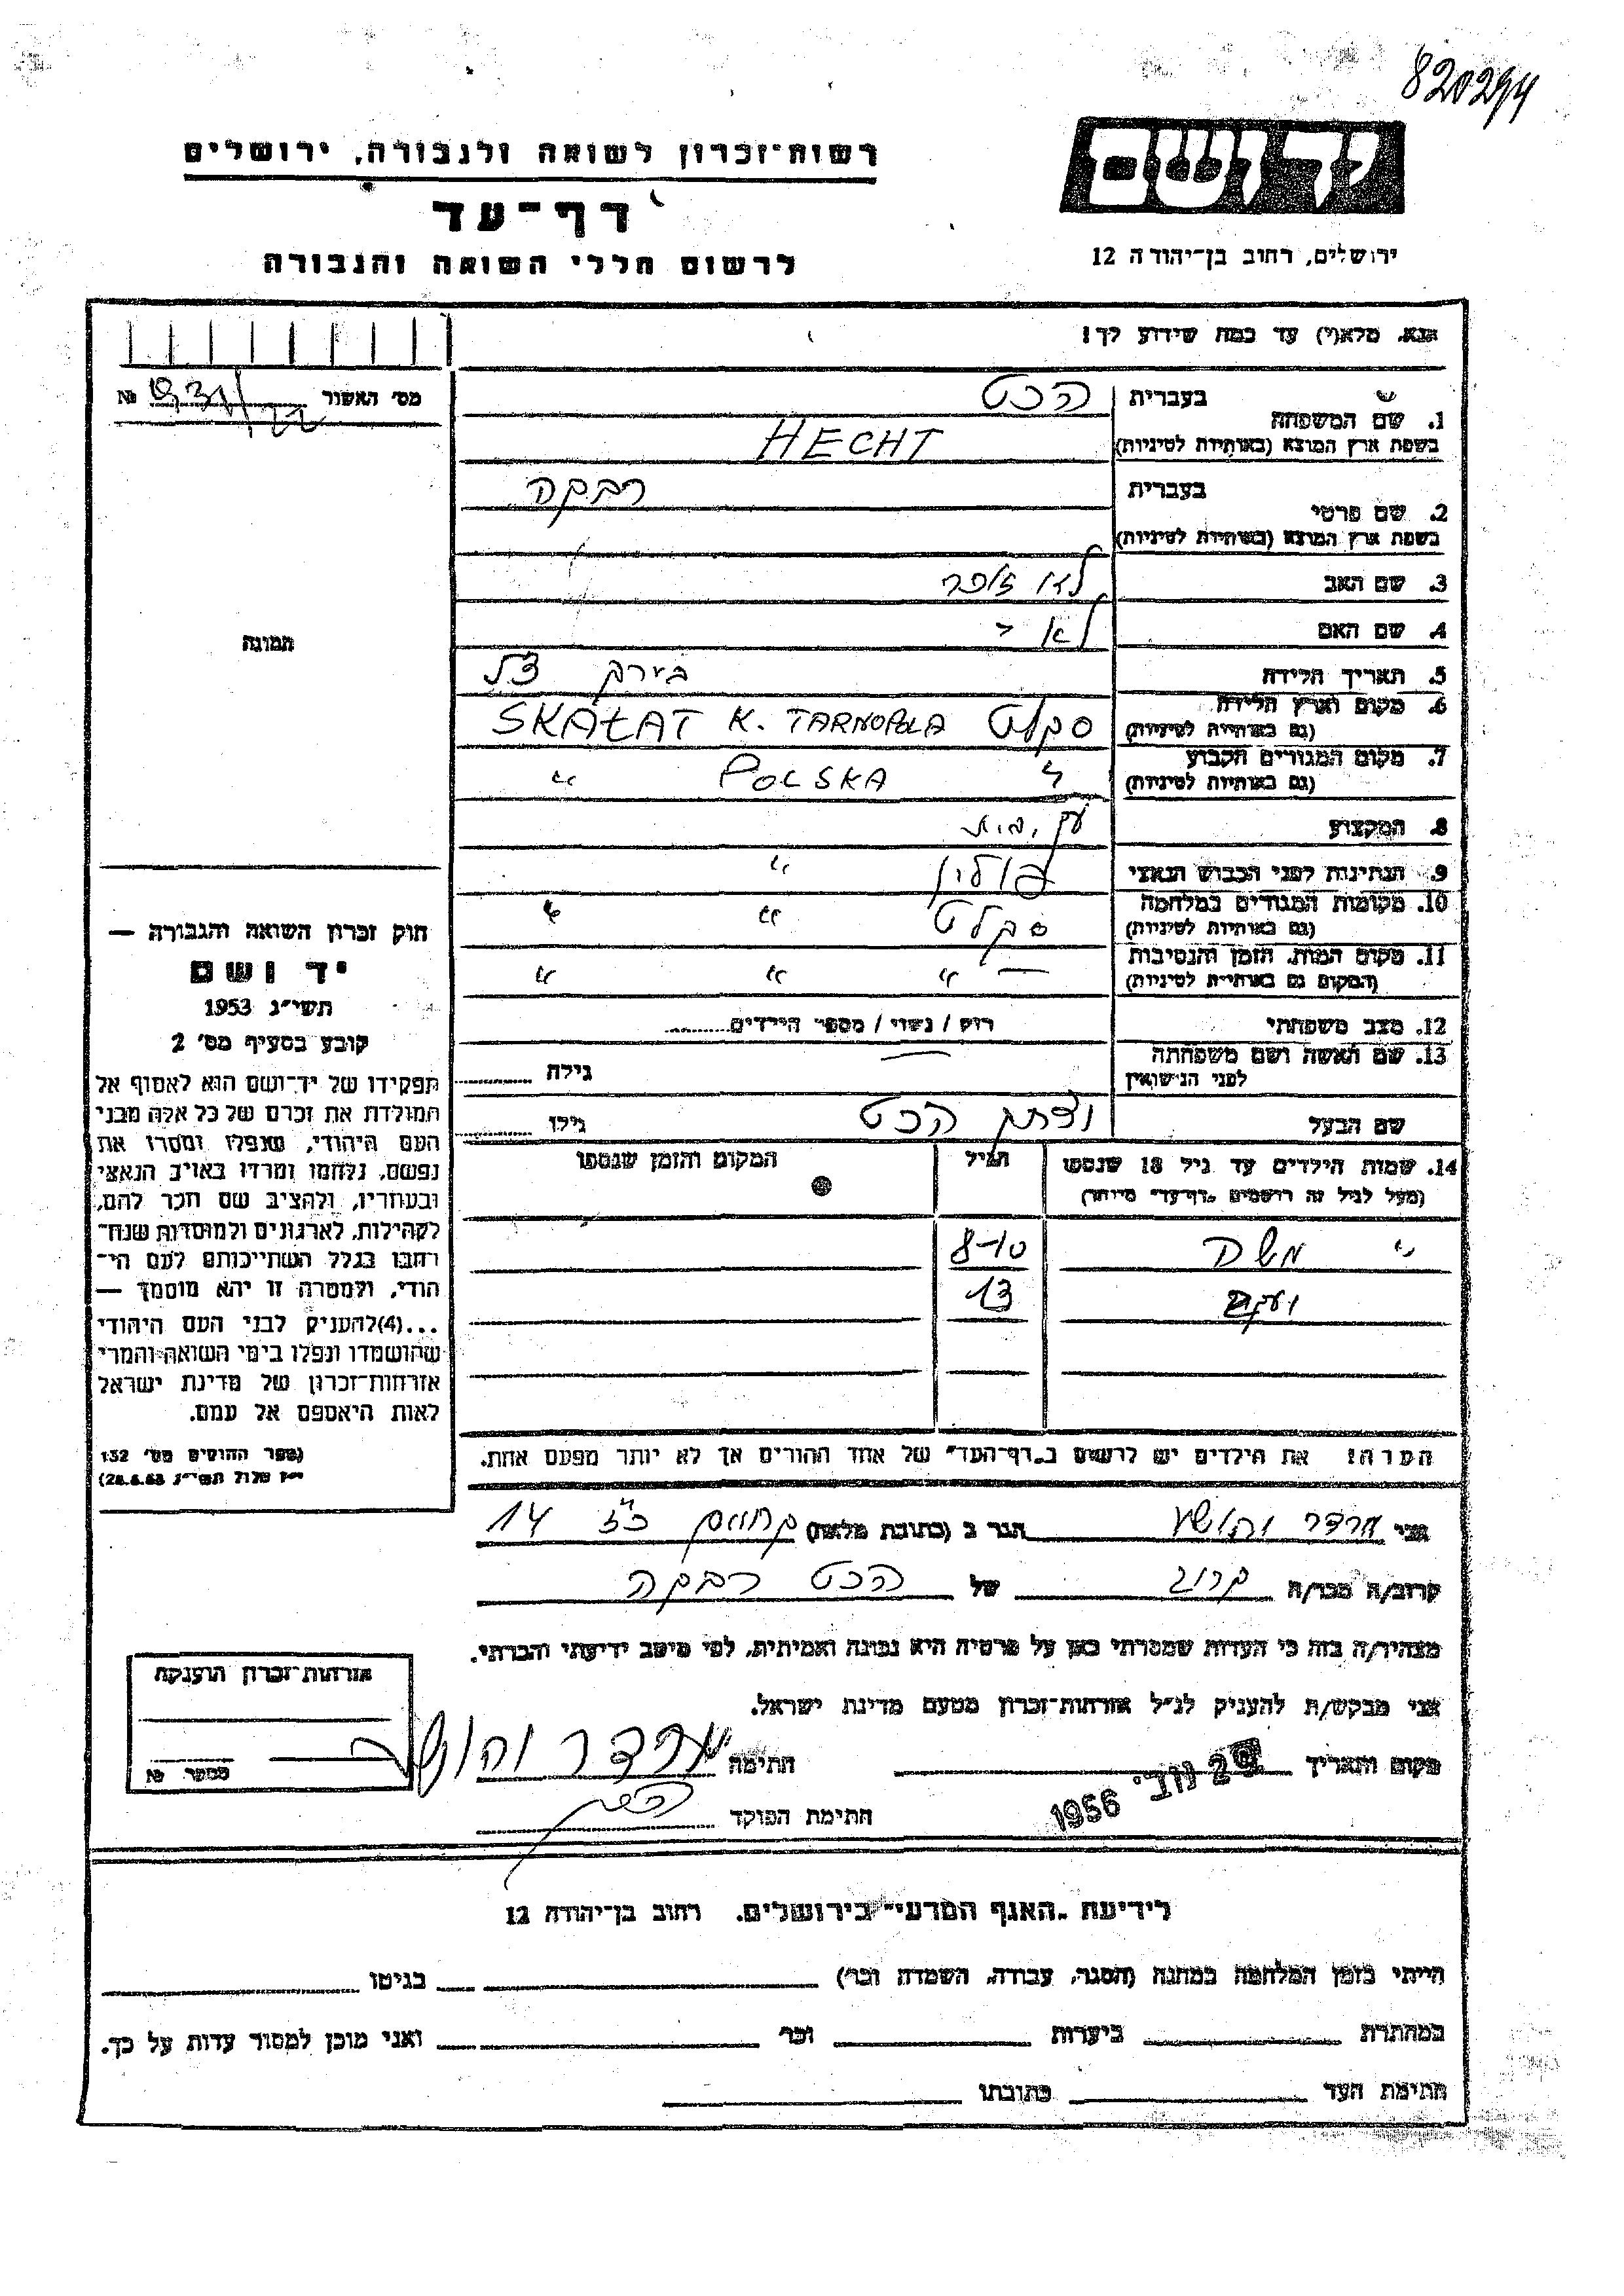 820294
יד ושם
רשות־זכרון לשואה ולגבורה, ירושלים
דף־עד
לרשום חללי השואה והגבורה
ירושלים, רחוב בן־יהודה 12
נא, מלא(י) עד כמה שידוע לך!
מס׳ האשור №
1. שם המשפחה
בעברית הכט
בשפת ארץ המוצא (באותיות לטיניות) HECHT
2. שם פרטי
בעברית רבקה
בשפת ארץ המוצא (באותיות לטיניות)
3. שם האב לא זוכר
4. שם האם לא י
5. תאריך הלידה בערך
6. מקום וארץ הלידה (גם באותיות לטיניות) סקלט SKAŁAT K. TARNOPOLA
7. מקום המגורים הקבוע (גם באותיות לטיניות) " POLSKA "
8. המקצוע עק. בית
9. הנתינות לפני הכבוש הנאצי פולין "
10. מקומות המגורים במלחמה (גם באותיות לטיניות) סקלט " "
11. מקום המות, הזמן והנסיבות (המקום גם באותיות לטיניות) — " " "
12. מצב משפחתי רווק / נשוי / מספר הילדים
13. שם האשה ושם משפחתה לפני הנישואין — גילה
שם הבעל יצחק הכט גילו
14. שמות הילדים עד גיל 18 שנספו הגיל המקום והזמן שנספו
(מעל לגיל זה רושמים "דף־עד" מיוחד)
" משה 8-10
יעקב 13
הערה! את הילדים יש לרשום ב"דף־העד" של אחד ההורים אך לא יותר מפעם אחת.
תמונה
חוק זכרון השואה והגבורה —
יד ושם
תשי״ג 1953
קובע בסעיף מס׳ 2
תפקידו של יד־ושם הוא לאסוף אל
המולדת את זכרם של כל אלה מבני
העם היהודי, שנפלו ומסרו את
נפשם, נלחמו ומרדו באויב הנאצי
ובעוזריו, ולהציב שם וזכר להם,
לקהילות, לארגונים ולמוסדות שנח־
רבו בגלל השתייכותם לעם הי־
הודי, ולמטרה זו יהא מוסמך —
...(4) להעניק לבני העם היהודי
שהושמדו ונפלו בימי השואה והמרי
אזרחות־זכרון של מדינת ישראל
לאות היאספם אל עמם.
(ספר החוקים מס׳ 132
י״ז אלול תשי״ג 28.8.53)
אני ארדר יהושע הגר ב (כתובת מלאה) 14
קרוב/ה מכר/ה קרוב של הכט רבקה
מצהיר/ה בזה כי העדות שמסרתי כאן על פרטיה היא נכונה ואמיתית, לפי מיטב ידיעתי והכרתי.
אני מבקש/ת להעניק לנ״ל אזרחות־זכרון מטעם מדינת ישראל.
מקום ותאריך 29 נוב׳ 1956 חתימה ארדר יהושע
חתימת הפוקד
אזרחות־זכרון הוענקה
מספר №
לידיעת "האגף המדעי" בירושלים. רחוב בן־יהודה 12
הייתי בזמן המלחמה במחנה (הסגר, עבודה, השמדה וכו׳) בגיטו
במחתרת ביערות וכו׳ ואני מוכן למסור עדות על כך.
חתימת העד כתובתו